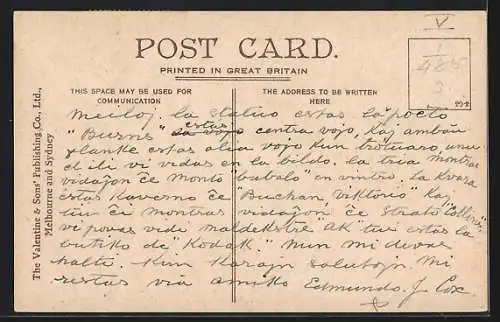 V
1
485
S
POST CARD.
PRINTED IN GREAT BRITAIN
THIS SPACE MAY BE USED FOR
COMMUNICATION
THE ADDRESS TO BE WRITTEN
HERE
The Valentine & Sons' Publishing Co., Ltd.,
Melbourne and Sydney
meiloj. la statuo estas la poeto
"Burns" estas la vojo centra vojo, Kaj ambaŭ
flanke estas alia vojo kun trotuaro, unu
el ili vi vidas en la bildo. La tria montras
vidaĵon ĉe Monto "bubalo" en vintro. La Kvara
estas Kaverno ĉe "Buchan, Viktorio" Kaj
tiu ĉi montras vidaĵon ĉe Strato "Collins,"
vi povas vidi maldekstre "AK" tui estas la
butiko de "Kodak." Nun mi devas
halti. Kun Karajn salutojn. Mi
restas via amiko Edmundo. J. Cox.